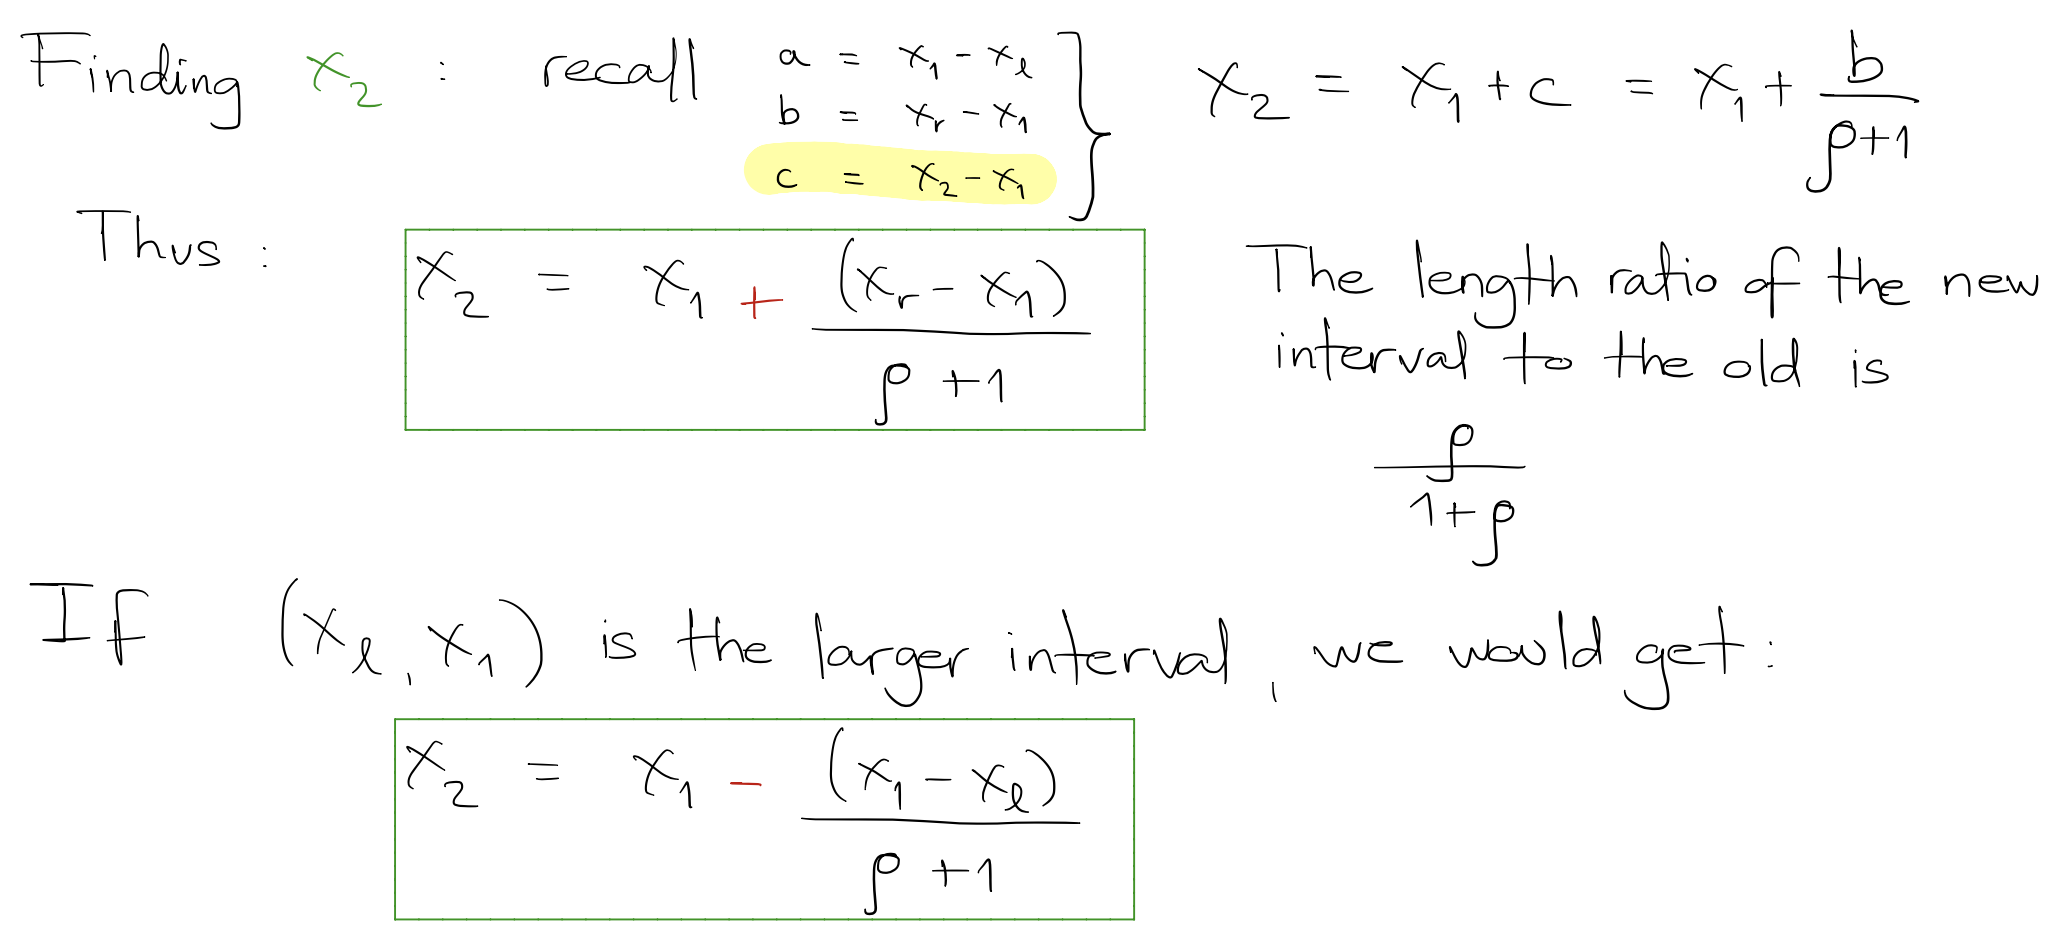 Finding x₂ : recall a = x₁ - xₗ
b = xᵣ - x₁
c = x₂ - x₁
} x₂ = x₁ + c = x₁ + b/(ρ+1)
Thus : x₂ = x₁ + (xᵣ - x₁)/(ρ+1)
The length ratio of the new
interval to the old is
ρ/(1+ρ)
If (xₗ, x₁) is the larger interval, we would get :
x₂ = x₁ - (x₁ - xₗ)/(ρ+1)